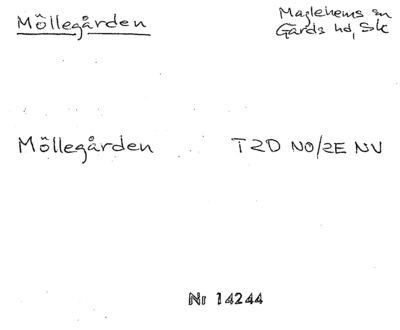 Möllegården
Maglehems sn
Gärds hd, Sk
Möllegården T2D NO/2E NV
Nr 14244